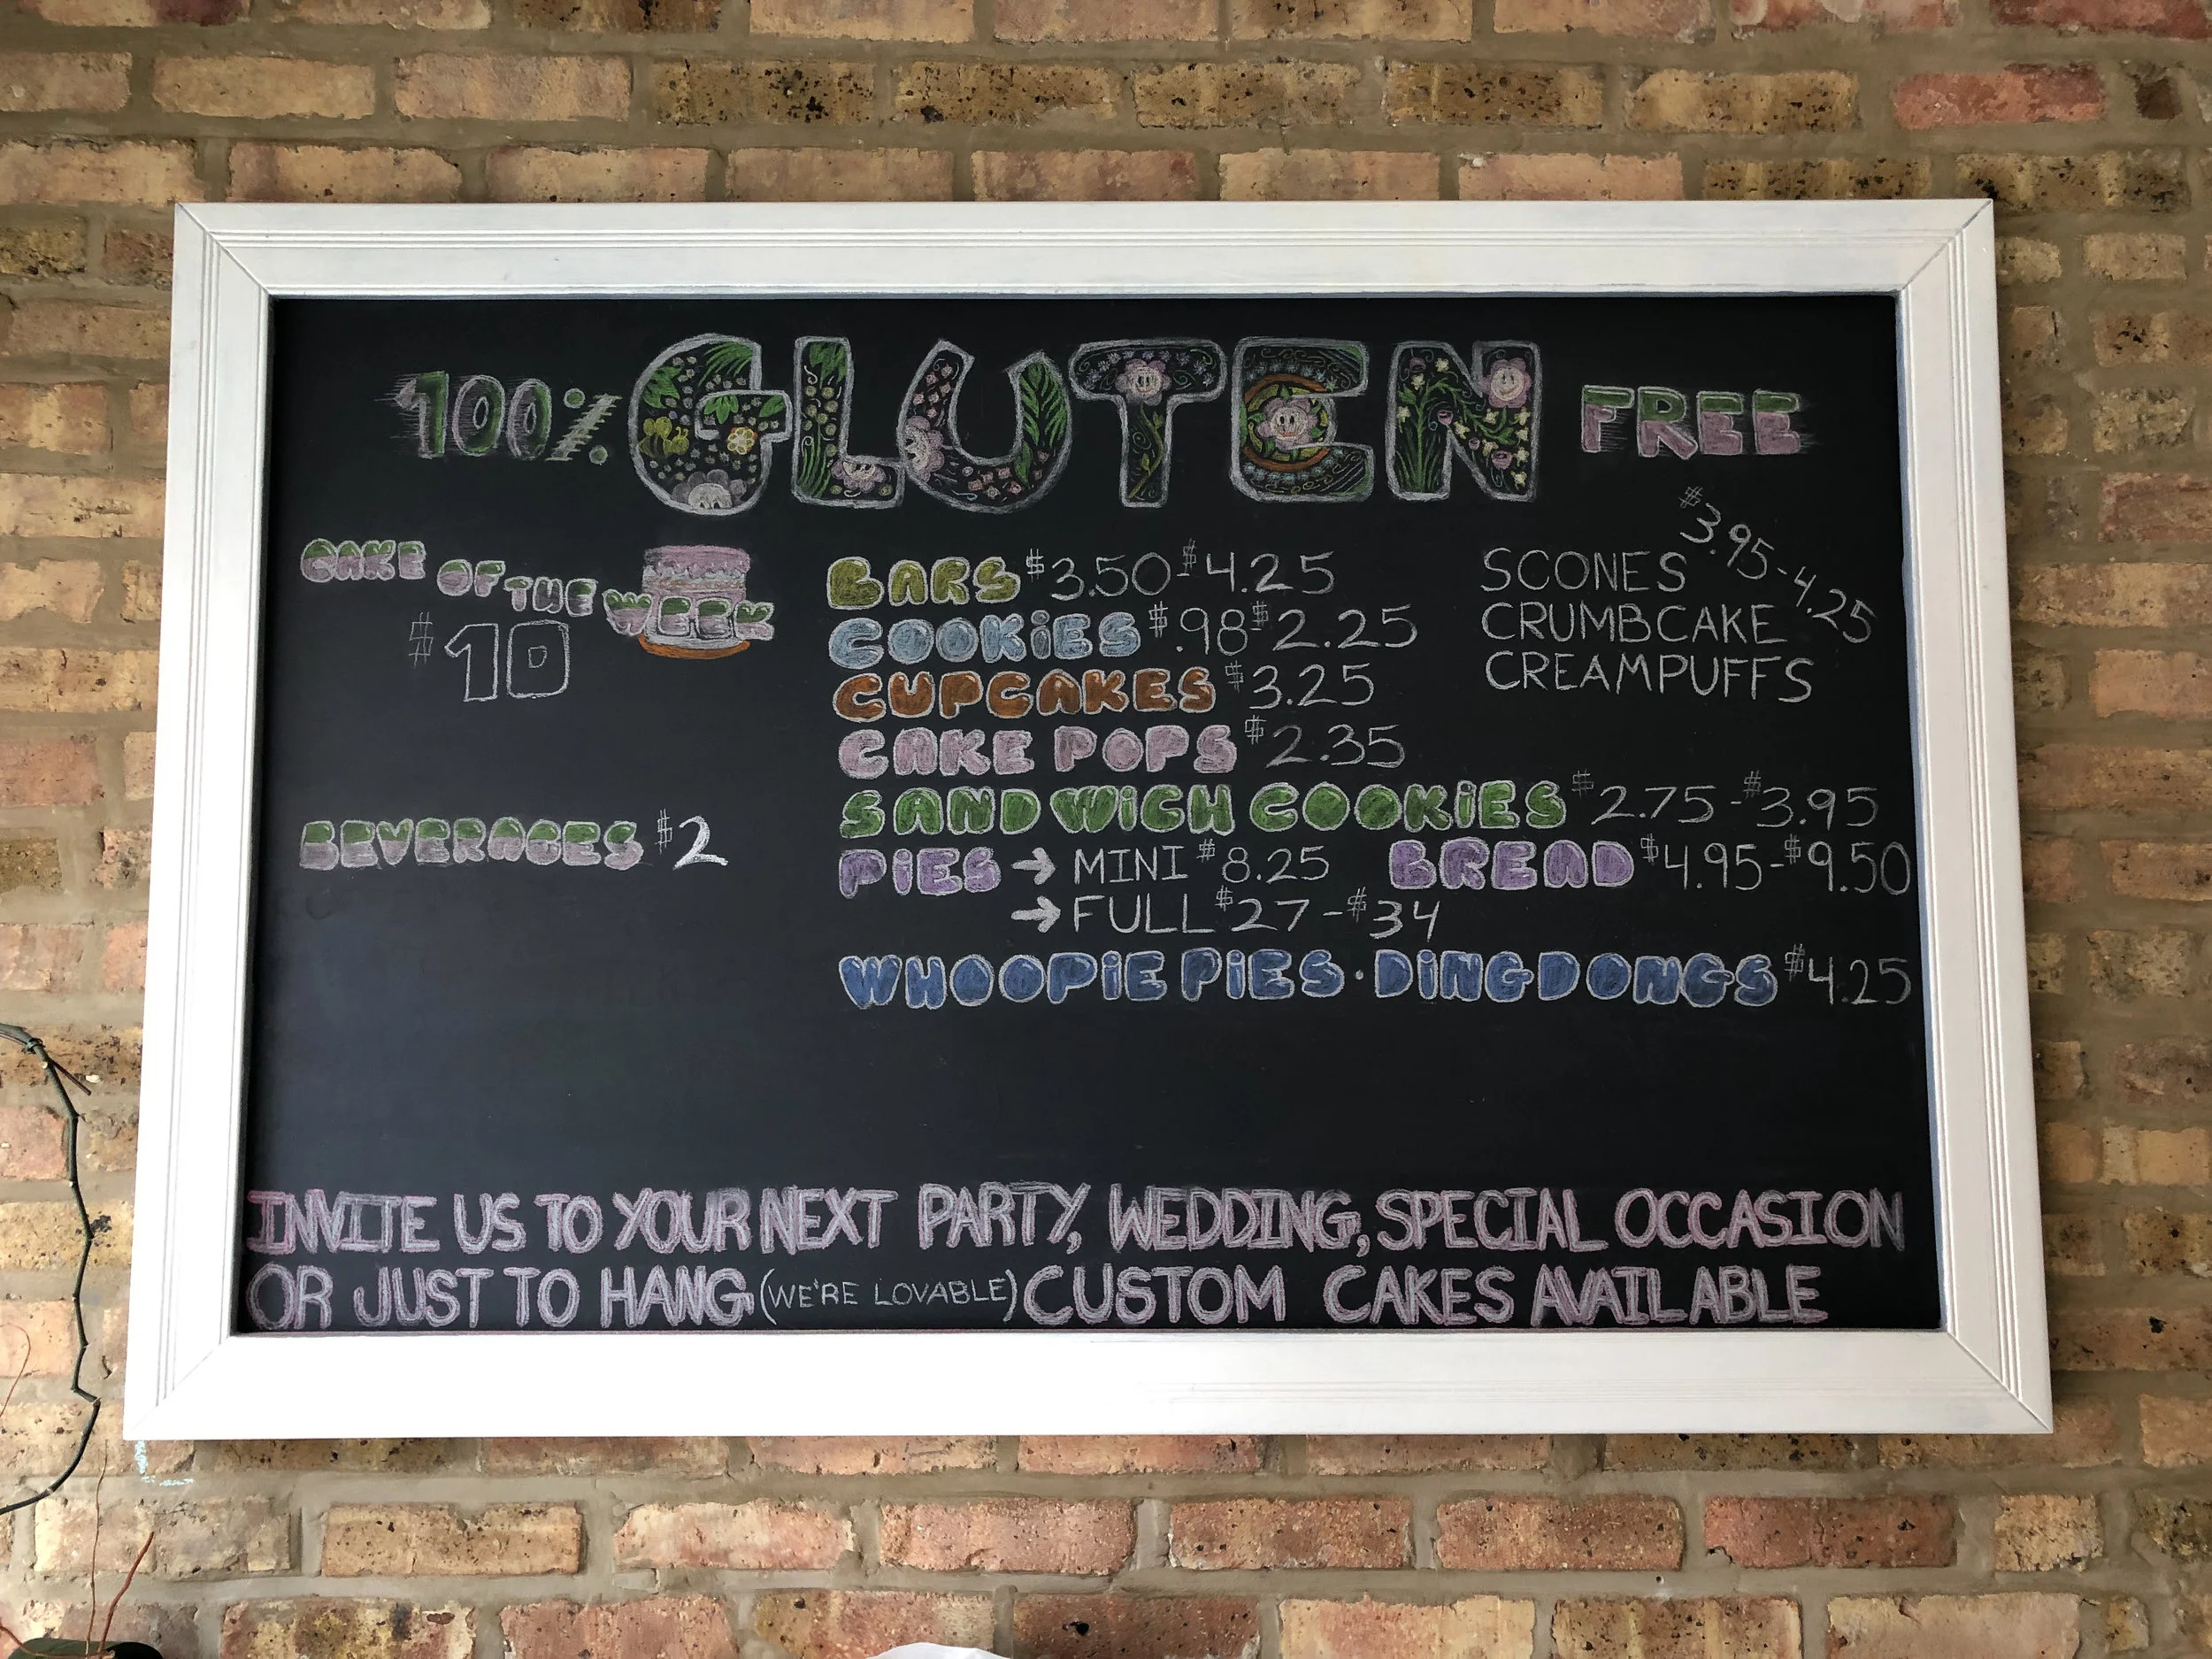 100% GLUTEN FREE
CAKE OF THE WEEK
$10
BEVERAGES $2
BARS $3.50-$4.25
COOKIES $.98-$2.25
CUPCAKES $3.25
CAKE POPS $2.35
SANDWICH COOKIES $2.75-$3.95
PIES → MINI $8.25 BREAD $4.95-$9.50
→ FULL $27-$34
WHOOPIE PIES · DING DONGS $4.25
SCONES $3.95-4.25
CRUMBCAKE
CREAMPUFFS
INVITE US TO YOUR NEXT PARTY, WEDDING, SPECIAL OCCASION
OR JUST TO HANG (WE'RE LOVABLE) CUSTOM CAKES AVAILABLE